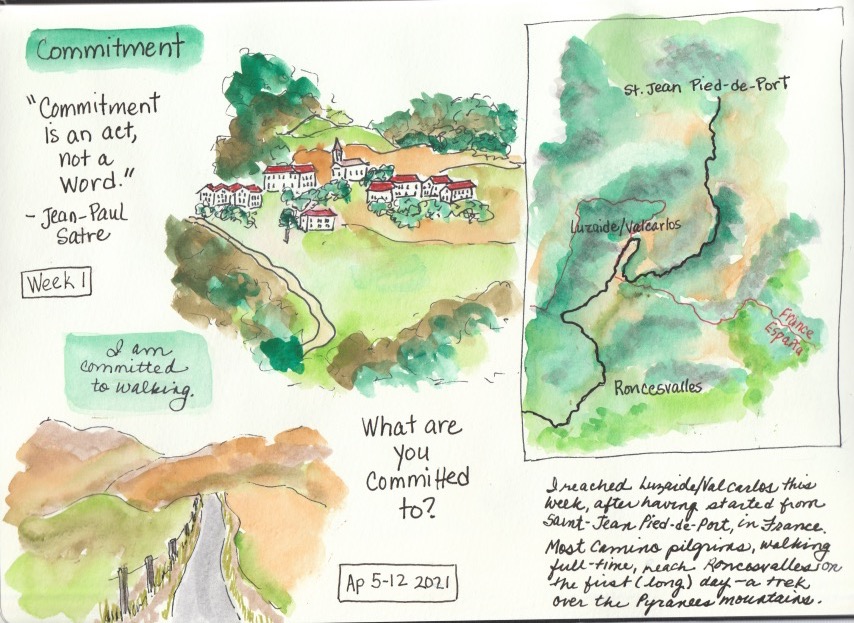 Commitment
"Commitment
is an act,
not a
word."
- Jean-Paul
Satre
Week 1
I am
committed
to walking.
What are
you
committed
to?
Ap 5-12 2021
St. Jean Pied-de-Port
Luzaide/Valcarlos
France
España
Roncesvalles
I reached Luzaide/Valcarlos this
week, after having started from
Saint-Jean Pied-de-Port, in France.
Most Camino pilgrims, walking
full-time, reach Roncesvalles on
the first (long) day - a trek
over the Pyranees mountains.